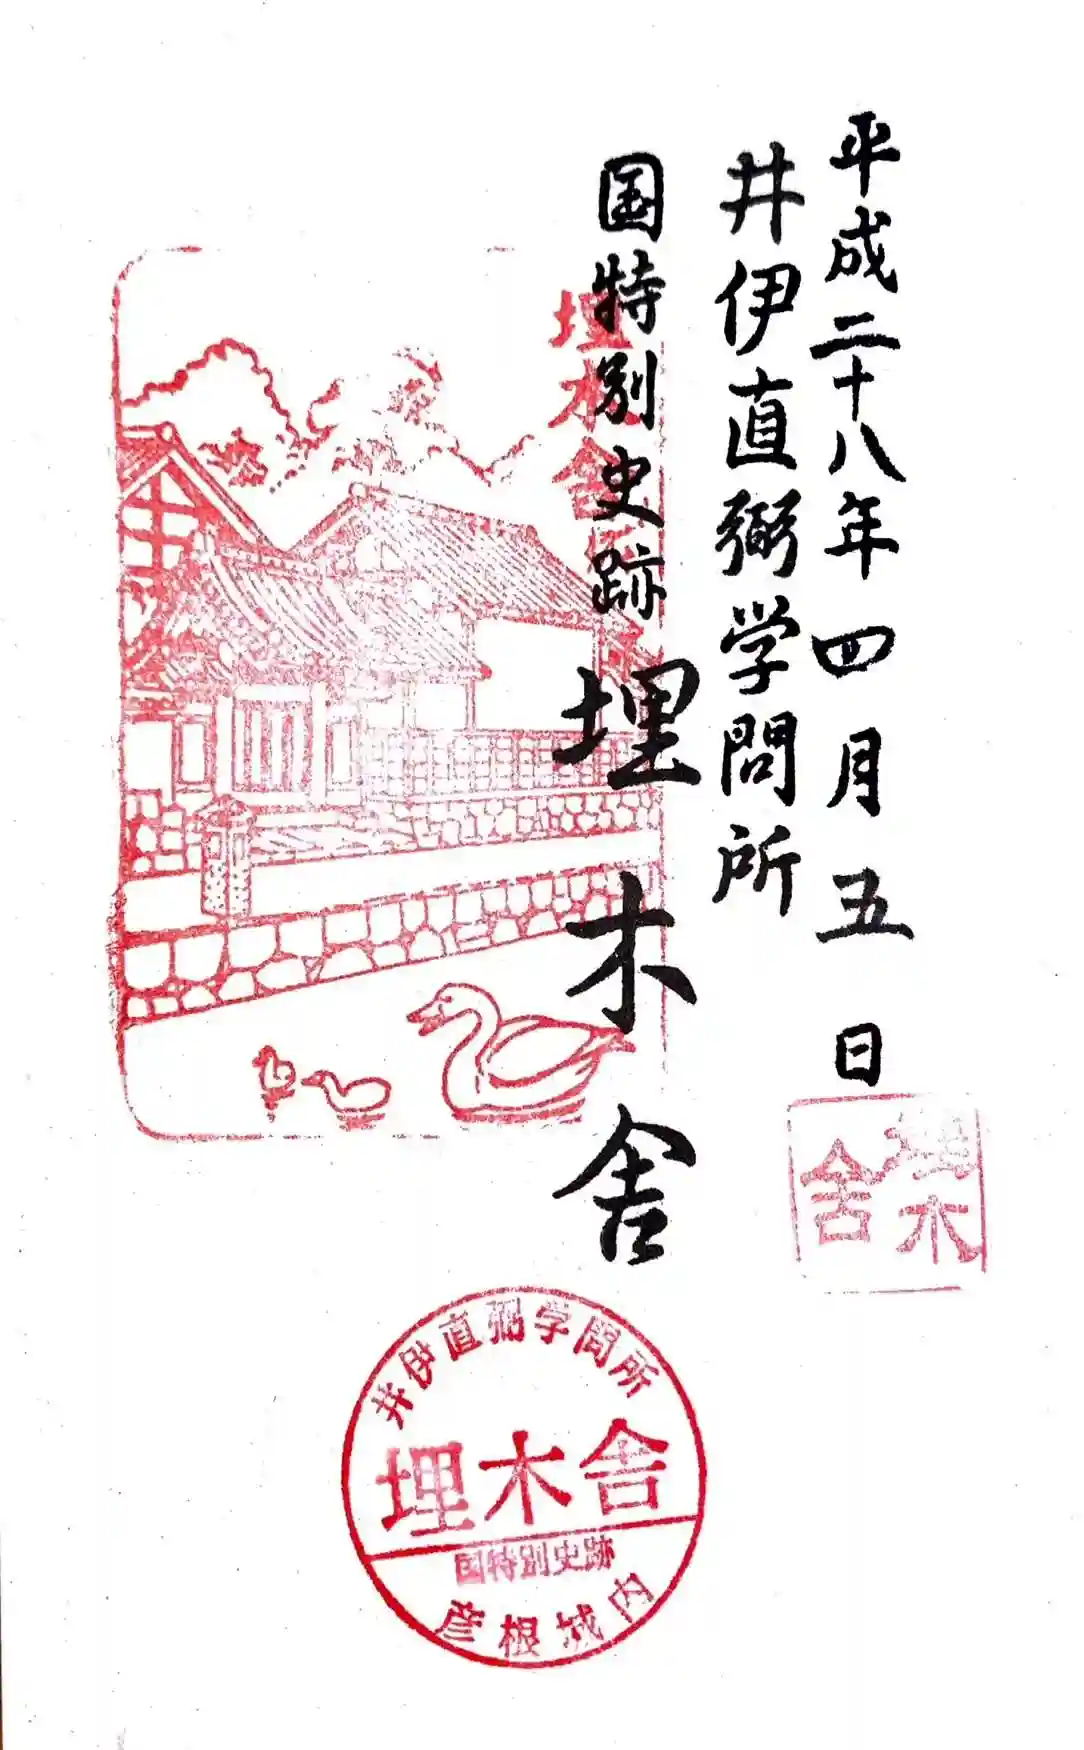 平成二十八年四月五日
井伊直弼学問所
国特別史跡 埋木舎
埋木舎
埋木舎
井伊直弼学問所
埋木舎
国特別史跡
彦根城内